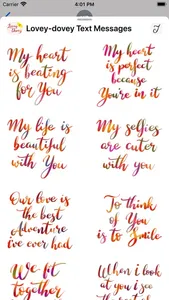 4:01 PM
Lovey-dovey Text Messages
My heart
is beating
for You
My heart
is perfect
because
You're in it
My life is
beautiful
with You
My selfies
are cuter
with You
Our love is
the best
Adventure
i've ever had
To think
of You
is to Smile
We fit
together
When i look
at you i see